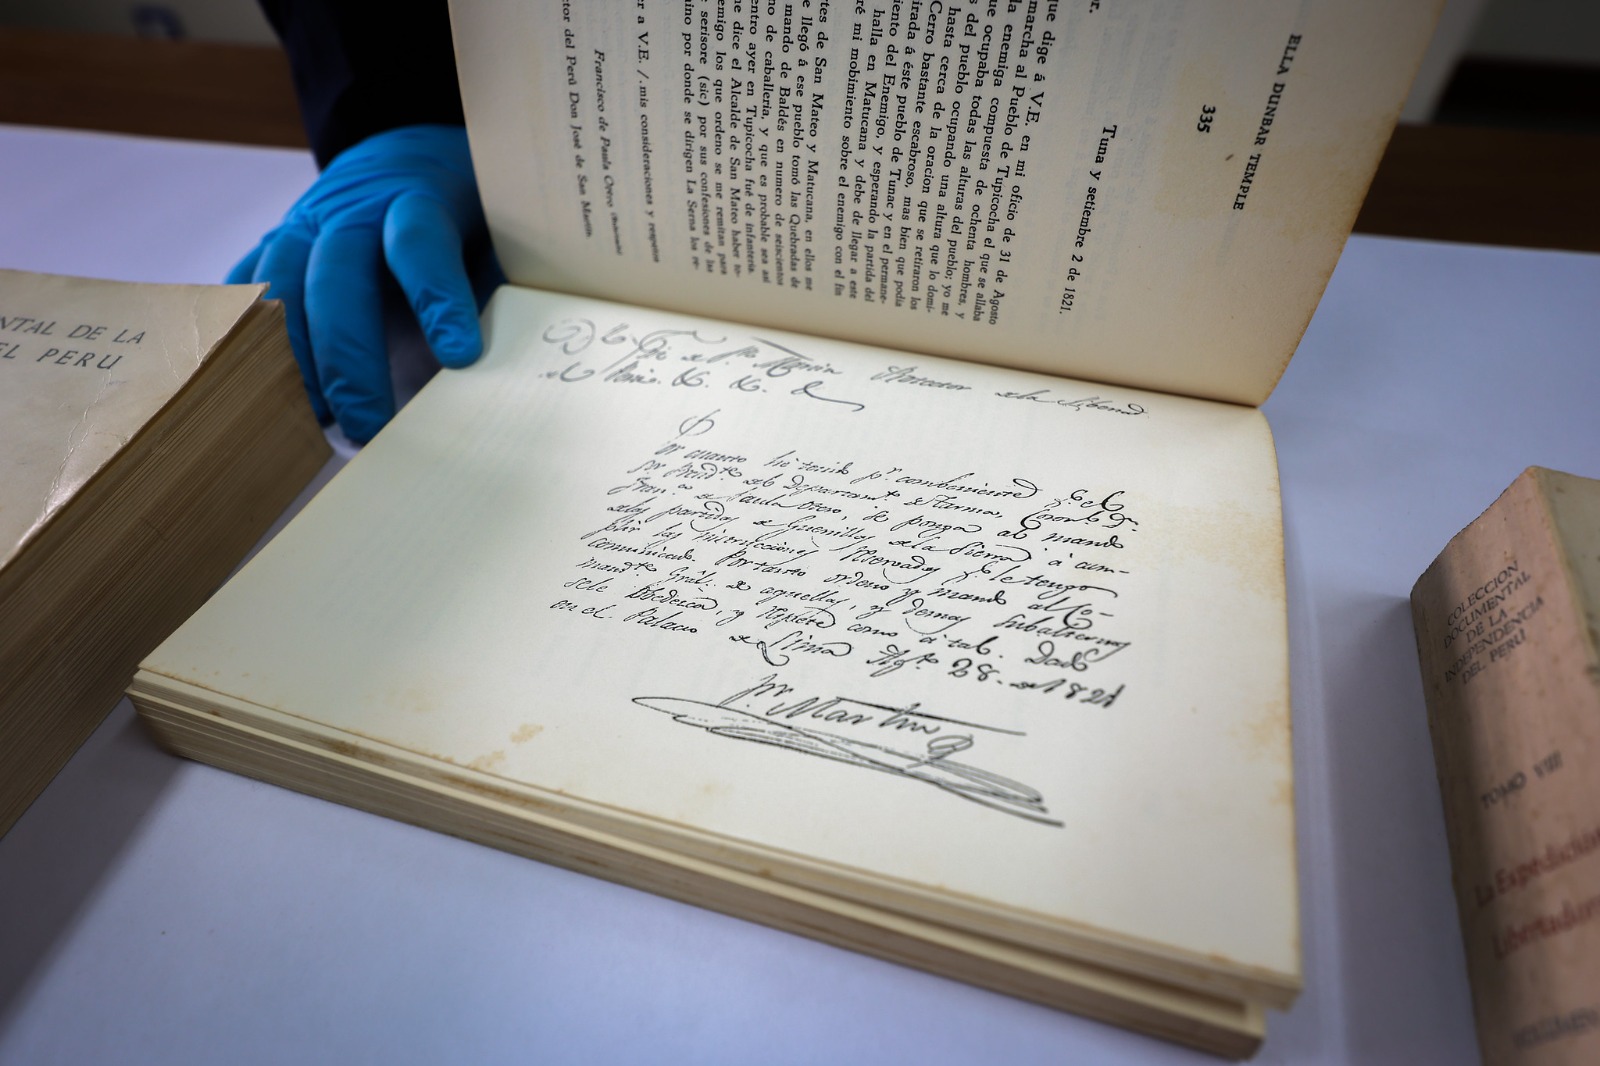 NTAL DE LA
EL PERU
ELLA DUNBAR TEMPLE
335
Tuna y setiembre 2 de 1821.
que dige á V.E. en mi oficio de 31 de Agosto
marcha al Pueblo de Tupicocha el que se allaba
la enemiga compuesta de ochenta hombres, y
ue ocupaba todas las alturas del pueblo; yo me
s del pueblo ocupando una altura que lo domi-
hasta cerca de la oracion que se retiraron los
Cerro bastante escabroso, mas bien que podia
irada á éste pueblo de Tunac y en el permane-
iento del Enemigo, y esperando la partida del
halla en Matucana y debe de llegar a este
ré mi mobimiento sobre el enemigo con el fin
rtes de San Mateo y Matucana, en ellos me
e llegó á ese pueblo tomó las Quebradas de
mando de Baldés en numero de seiscientos
no de caballeria, y que es probable sea asi
entro ayer en Tupicocha fué de infantería.
ne dice el Alcalde de San Mateo haber to-
emigo los que ordeno se me remitan para
r serisore (sic) por sus confesiones de las
nino por donde se dirigen La Serna los re-
er a V.E. /.mis consideraciones y respetos
Francisco de Paula Otero
ctor del Perú Don José de San Martín.
de Sn. Martin Protector de la Libertad
del Perú. &. &. &
Por cuanto he tenido pr. combeniente qe. el
Sor. Presidte. del Departamto. de Tarma, Coronl. Dn.
Franco. de Paula Otero, se ponga al mando
de los partidos de Guerrillas de la Sierra á cum-
plir las instrucciones reservadas qe. le tengo
comunicado. Por tanto ordeno y mando al Co-
mandte. Gral. de aquellas, y demas subalternos
se le obedesca, y respete como á tal. Dado
en el Palacio de Lima Agto. 28. de 1821
Sn. Martin
COLECCION
DOCUMENTAL
DE LA
INDEPENDENCIA
DEL PERU
TOMO VIII
La Expedición
Libertadora